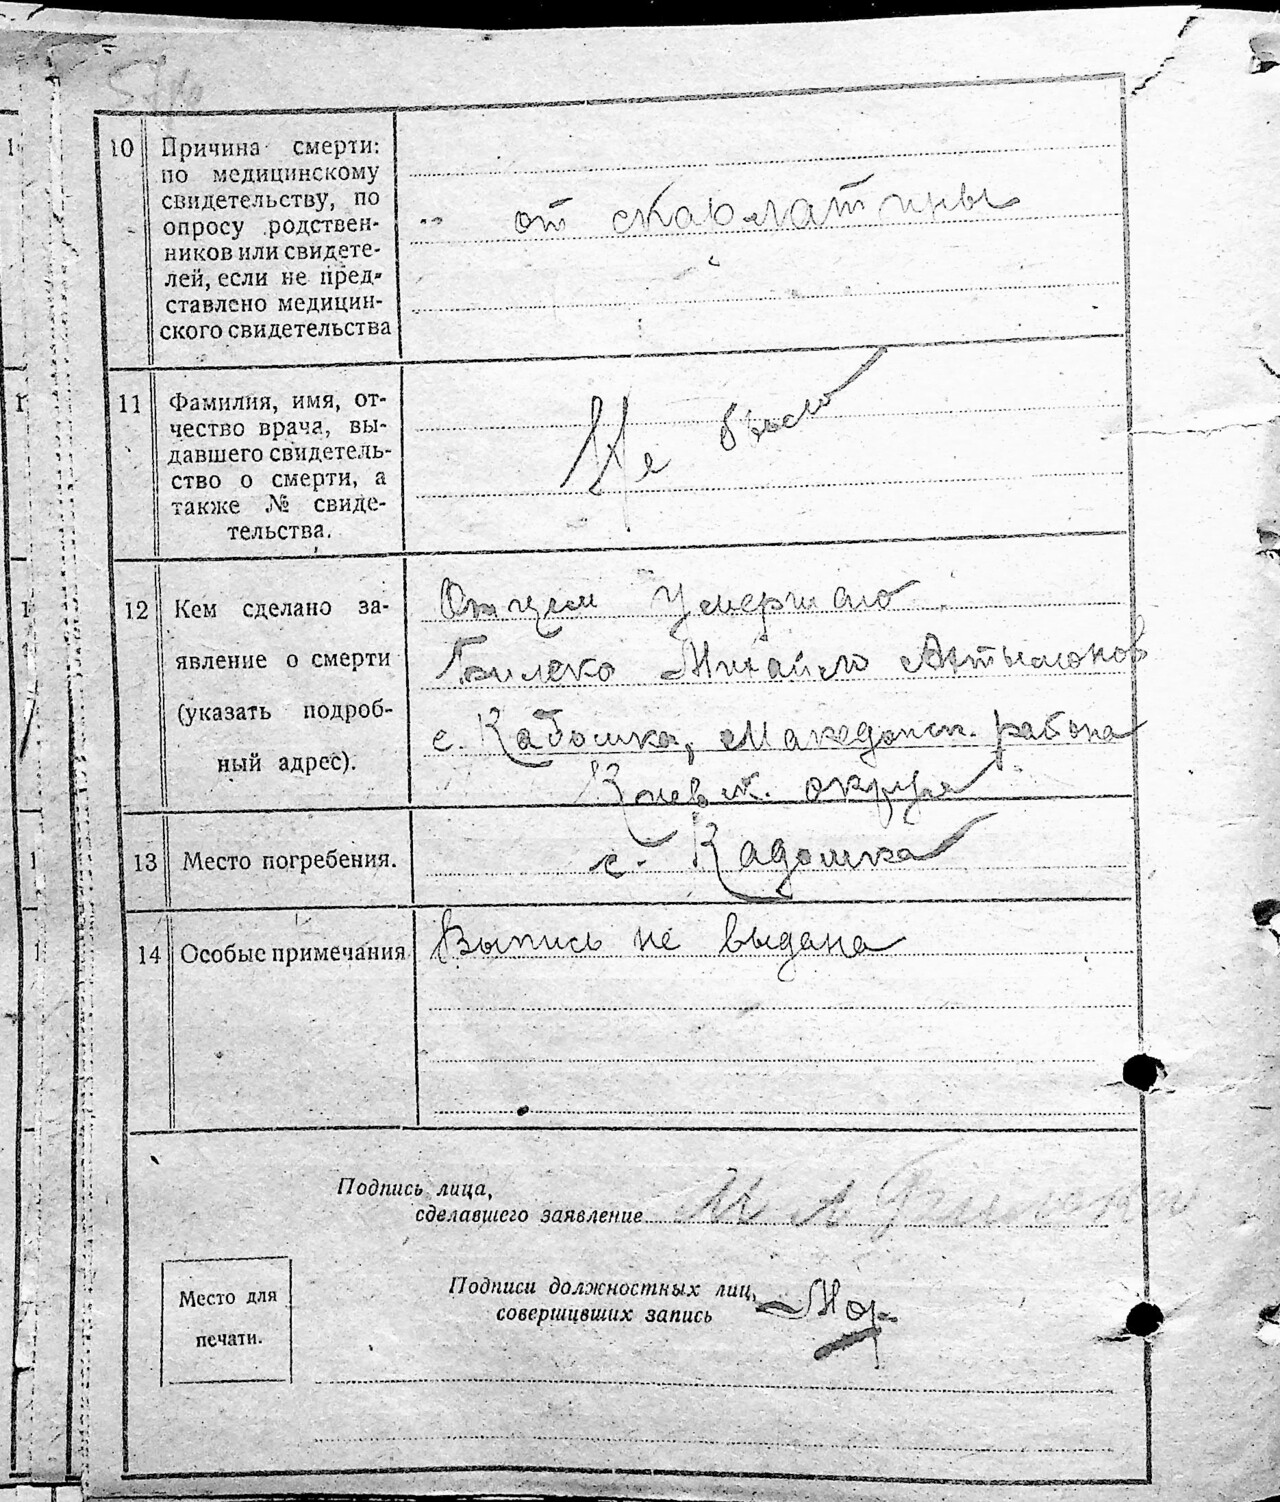 10 Причина смерти:
по медицинскому
свидетельству, по
опросу родствен-
ников или свидете-
лей, если не пред-
ставлено медицин-
ского свидетельства
от скарлатины
11 Фамилия, имя, от-
чество врача, вы-
давшего свидетель-
ство о смерти, а
также № свиде-
тельства.
Не было
12 Кем сделано за-
явление о смерти
(указать подроб-
ный адрес).
Отцем умершаю
Михайло
с. Кадошка, Македонск. района
Киевск. округа
13 Место погребения.
с. Кадошка
14 Особые примечания
Выпись не выдана
Подпись лица,
сделавшего заявление
М А
Место для
печати.
Подписи должностных лиц,
совершивших запись